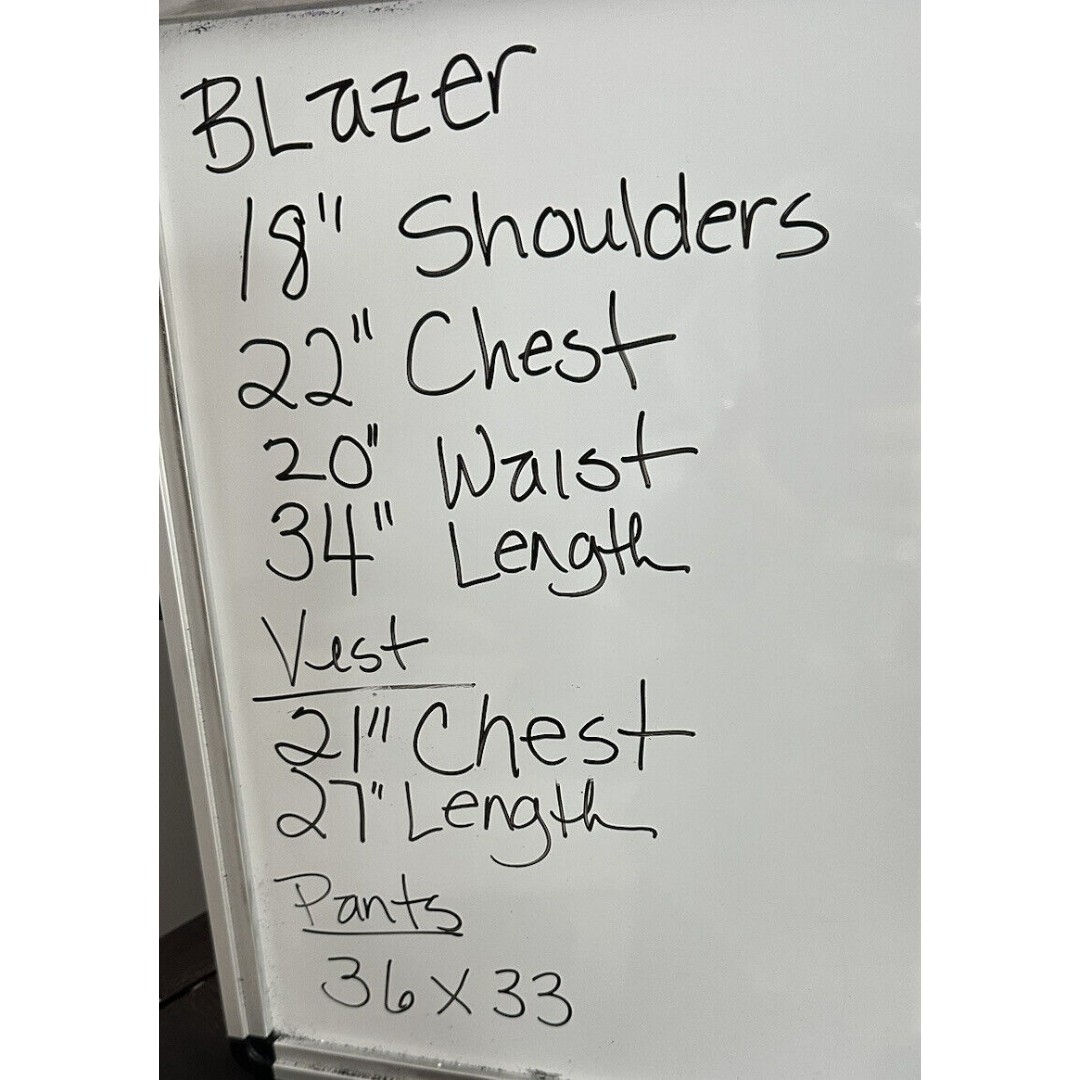 BLazer
18" Shoulders
22" Chest
20" Waist
34" Length
Vest
21" Chest
27" Length
Pants
36 x 33